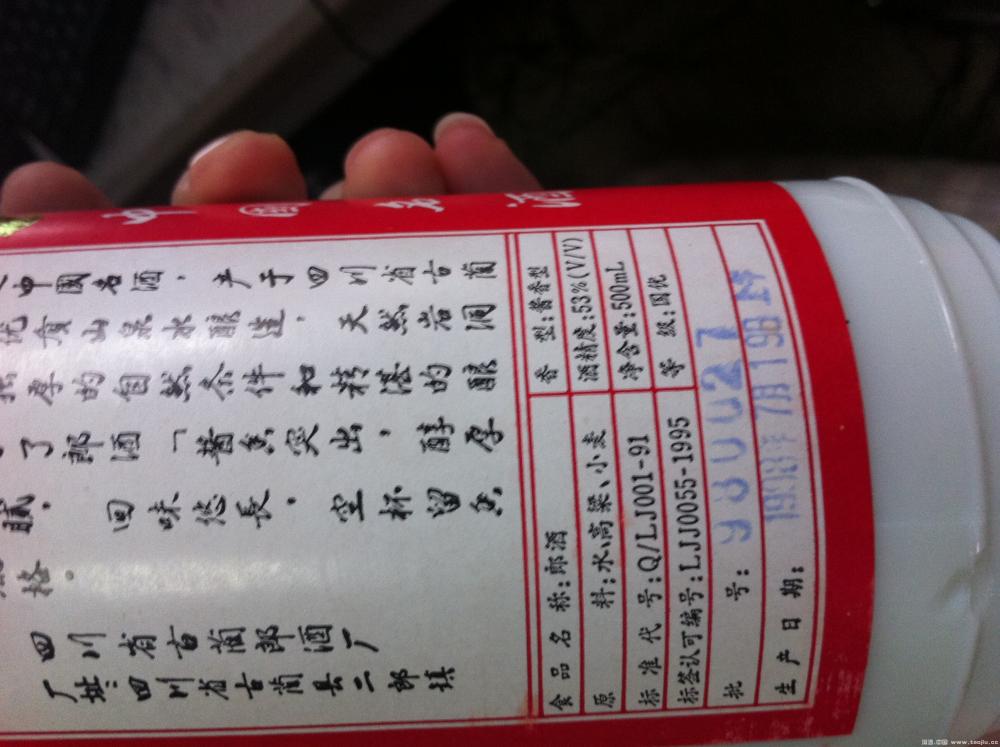 中國名酒，产于四川省古蔺
优质山泉水酿造，天然岩洞
的自然条件和精湛的酿
了郎酒「酱香突出，醇厚
腻，回味悠長，空杯留香
格。
四川省古蔺郎酒厂
厂址：四川省古蔺县二郎镇
食品名称：郎酒 香型：酱香型
原料：水、高粱、小麦 酒精度：53%(V/V)
标准代号：Q/LJ001-91 净含量：500mL
标签认可编号：LJJ0055-1995 等级：国优
批号：980027
生产日期：1998年7月19日
www.taojiu.cc